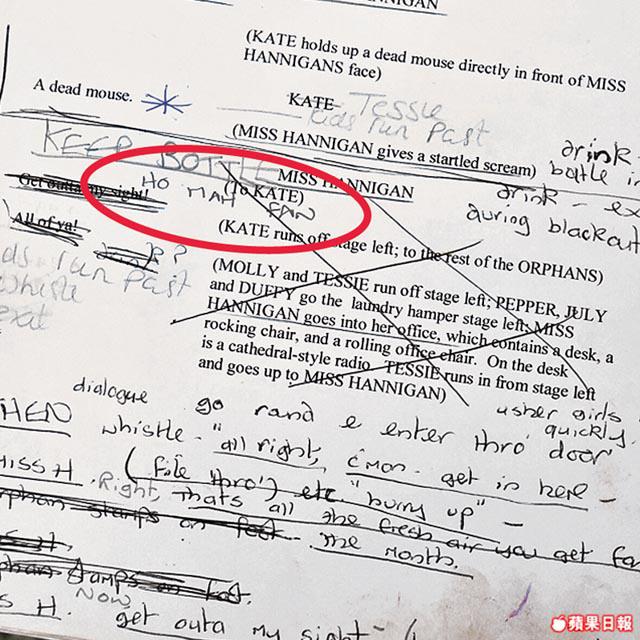 HANNIGAN
(KATE holds up a dead mouse directly in front of MISS
HANNIGANS face)
A dead mouse.
KATE Tessie
kids run past
(MISS HANNIGAN gives a startled scream)
drink
bottle in
KEEP BOTTLE
MISS HANNIGAN
Get outta my sight!
HO MAH FAN
(To KATE)
drink - ex
during blackout
All of ya!
(KATE runs off stage left; to the rest of the ORPHANS)
run past
whistle
(MOLLY and TESSIE run off stage left; PEPPER, JULY
and DUFFY go the laundry hamper stage left; MISS
HANNIGAN goes into her office, which contains a desk, a
rocking chair, and a rolling office chair. On the desk
is a cathedral-style radio. TESSIE runs in from stage left
and goes up to MISS HANNIGAN)
usher girls
quickly.
dialogue
HEN go rand e enter thro' door
whistle - "all right, c'mon get in here -
MISS H (File thro') etc "hurry up" -
Right, thats all the fresh air you get for
orphan stamps on foot the month.
orphan stamps on foot.
NOW
S H. get outa my sight -
蘋果日報